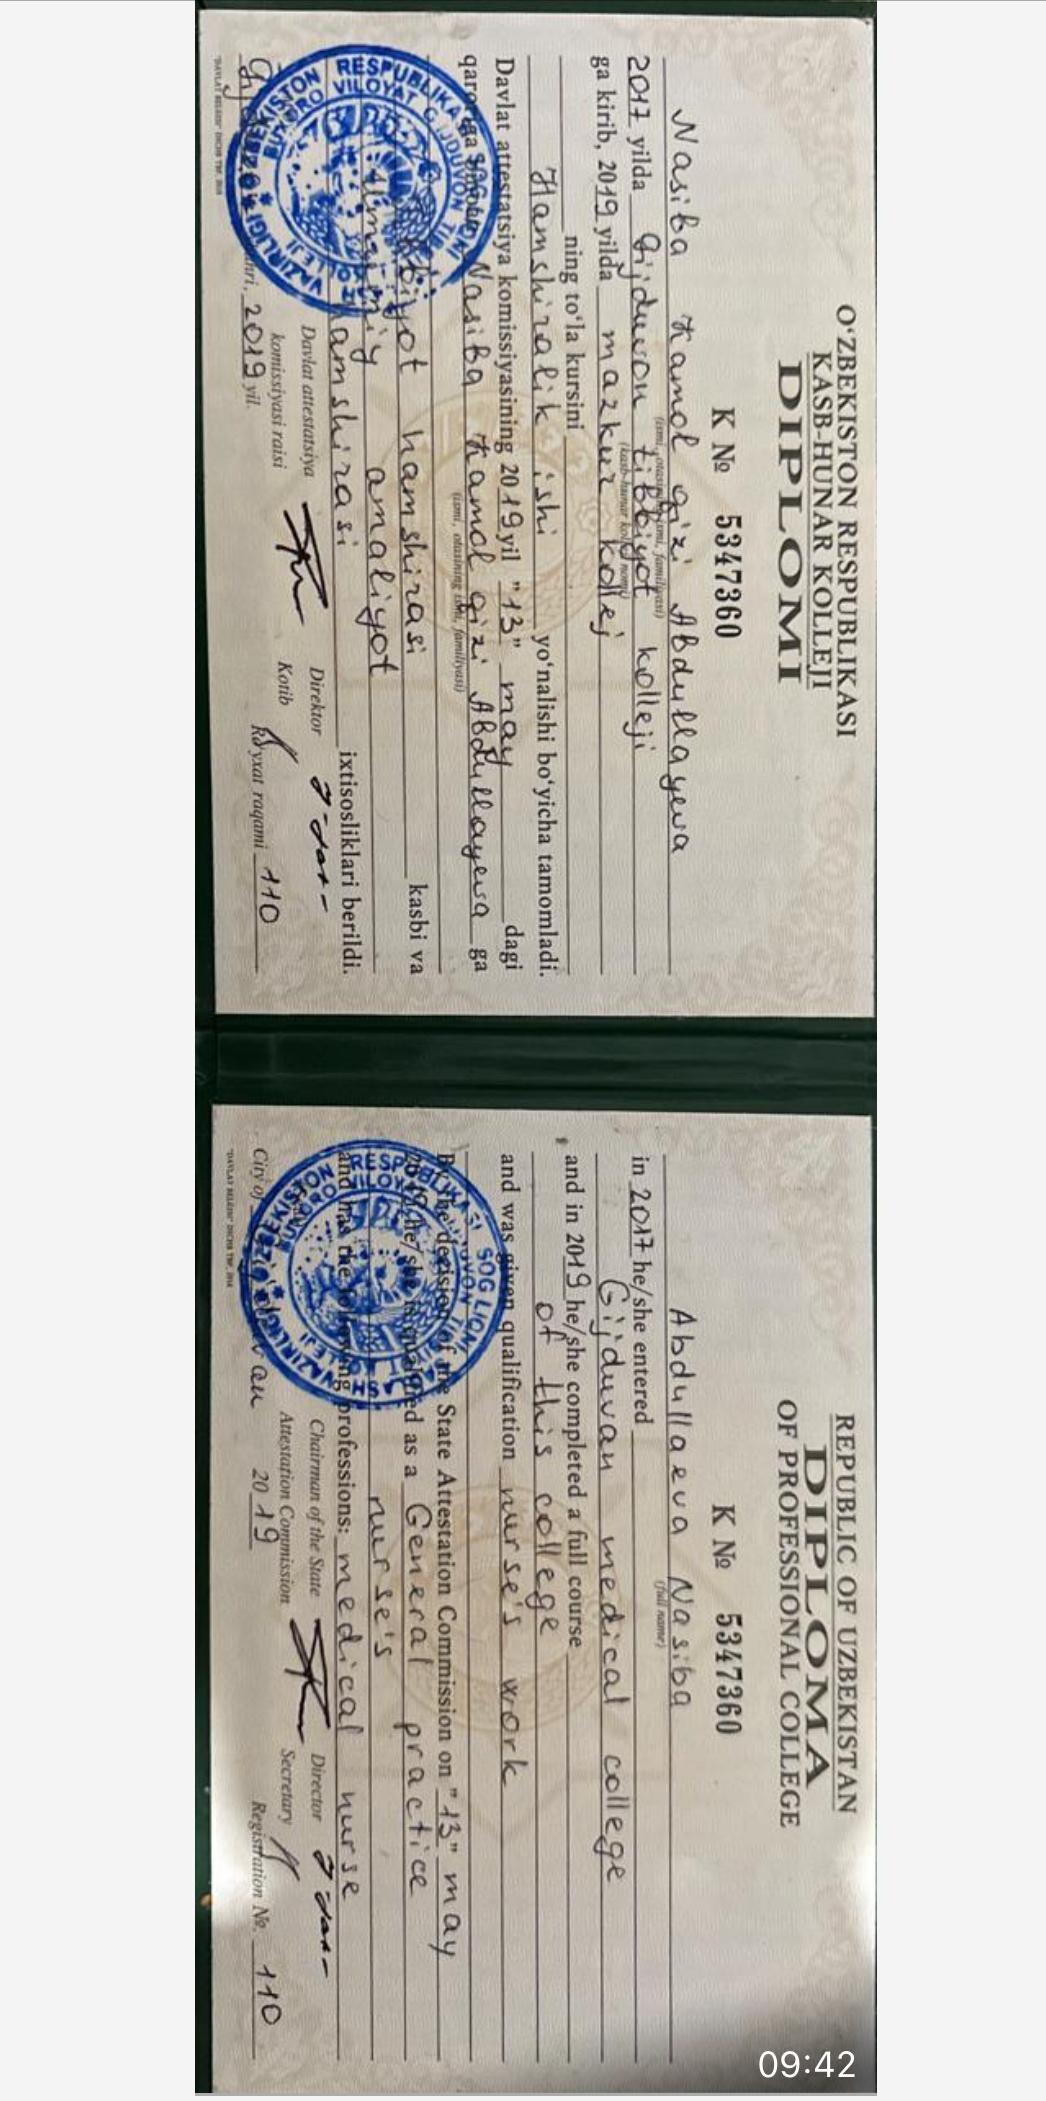 O‘ZBEKISTON RESPUBLIKASI
KASB-HUNAR KOLLEJI
DIPLOMI
K № 5347360
Nasiba Kamol qizi Abdullayeva
(ismi, otasining ismi, familiyasi)
2017 yilda Gijduvon tibbiyot kolleji
(kasb-hunar kolleji nomi)
ga kirib, 2019 yilda mazkur kollej
ning to‘la kursini
Hamshiralik ishi yo‘nalishi bo‘yicha tamomladi.
Davlat attestatsiya komissiyasining 2019 yil "13" may dagi
qaroriga Nasiba Kamol qizi Abdullayeva ga
(ismi, otasining ismi, familiyasi)
Tibbiyot hamshirasi kasbi va
Umumiy amaliyot
hamshirasi ixtisosliklari berildi.
Davlat attestatsiya
komissiyasi raisi
Direktor
Kotib
shahri, 2019 yil. Ro‘yxat raqami 110
REPUBLIC OF UZBEKISTAN
DIPLOMA
OF PROFESSIONAL COLLEGE
K № 5347360
Abdullaeva Nasiba
(full name)
in 2017 he/she entered
Gijduvan medical college
and in 2019 he/she completed a full course
of this college
and was given qualification nurse's work
By the decision of the State Attestation Commission on "13" may
2019 he/she is qualified as a General practice
nurse's
and has the following professions: medical nurse
Chairman of the State
Attestation Commission
Director
Secretary
City of Gijduvan 2019 Registration №. 110
09:42